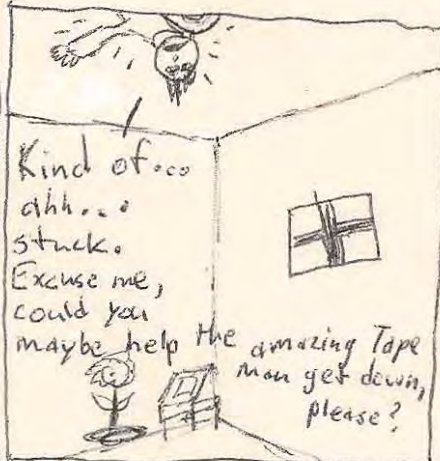 Kind of...
ahh...
stuck.
Excuse me,
could you
maybe help the amazing Tape
man get down,
please?